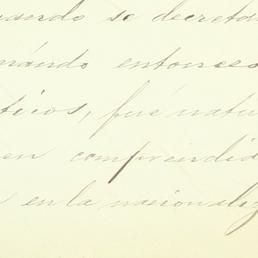 uando se decreta
mándo entonces
ticos, fué natu
en comprendid
en la nacionalid